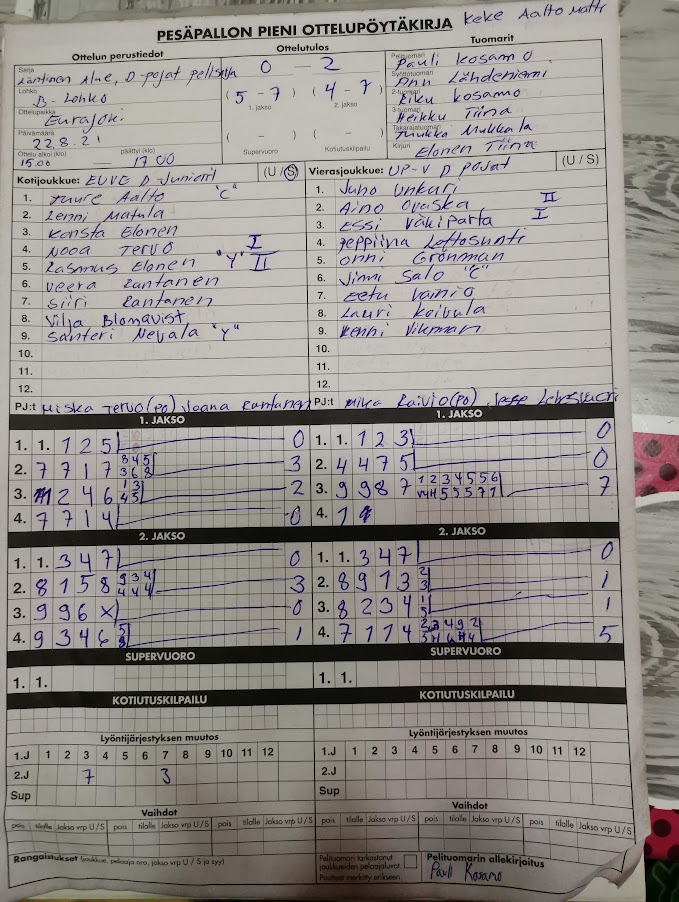 PESÄPALLON PIENI OTTELUPÖYTÄKIRJA Keke Aalto Matti
Ottelun perustiedot
Ottelutulos
Tuomarit
Sarja
Läntinen Alue, D-pojat
0 – 2
Lohko
B-Lohko
( 5 – 7 ) ( 4 – 7 )
1. jakso 2. jakso
Ottelupaikka
Eurajoki
Päivämäärä
22.8.21
( – ) ( – )
Supervuoro Kotiutuskilpailu
Ottelu alkoi (klo) päättyi (klo)
15.00 – 17.00
Pelituomari
Pauli Kosamo
Syöttötuomari
Lähdeniemi
2-tuomari
Riku Kosamo
Heikku Tiina
Takarajatuomari
Tuukka Mukkala
Kirjuri
Elonen Tiina
Kotijoukkue: EUVE D-Juniorit (U / S)
1. Tuure Aalto "C"
2. Lenni Matula
3. Konsta Elonen
4. Nooa Tervo I
5. Rasmus Elonen "Y" II
6. Veera Rantanen
7. Siiri Rantanen
8. Vilja Blomqvist
9. Santeri Nevala "Y"
10.
11.
12.
PJ:t Miska Tervo (PO) Joana Rantanen
Vierasjoukkue: UP-V D pojat (U / S)
1. Juho Unkuri
2. Aino Ovaska II
3. Essi Väkiparta I
4.
5. Onni Grönman
6. Jimi Salo "C"
7. Eetu Vainio
8. Lauri Koivula
9. Kenni Vikman
10.
11.
12.
PJ:t Mika Raivio (PO)
1. JAKSO
1. 1. 1 2 5 0
2. 7 7 1 7 3
3. 2 4 6 2
4. 7 7 1 4 0
1. JAKSO
1. 1. 1 2 3 0
2. 4 4 7 5 0
3. 9 9 8 7 7
4. 1
2. JAKSO
1. 1. 3 4 7 0
2. 8 1 5 8 3
3. 9 9 6 X 0
4. 9 3 4 6 1
2. JAKSO
1. 1. 3 4 7 0
2. 8 9 1 3 1
3. 8 2 3 4 1
4. 7 1 1 4 5
SUPERVUORO
1. 1.
SUPERVUORO
1. 1.
KOTIUTUSKILPAILU
KOTIUTUSKILPAILU
Lyöntijärjestyksen muutos
1.J 1 2 3 4 5 6 7 8 9 10 11 12
2.J 7 3
Sup
Lyöntijärjestyksen muutos
1.J 1 2 3 4 5 6 7 8 9 10 11 12
2.J
Sup
Vaihdot
pois tilalle Jakso vrp U / S pois tilalle Jakso vrp U / S
Vaihdot
pois tilalle Jakso vrp U / S pois tilalle Jakso vrp U / S
Rangaistukset (joukkue, pelaaja nro, jakso vrp U / S ja syy)
Pelituomari tarkastanut
joukkueiden pelaajaluvat.
Puutteet merkitty erikseen.
Pelituomarin allekirjoitus
Pauli Kosamo